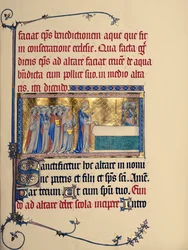 faciat eps benedictionem aque que fit
in consecratione ecclesie. Qua facta
dicens eps ad altare faciat crucem de aqua
bndicta cum pollice suo. in medio alta
ris. ita dicendo.
Sanctificetur hoc altare in nomi
ne patris et filii et sps sci. Amen.
Pax tecum. Et cum spu tuo. 
ad altare scola incipere Intro